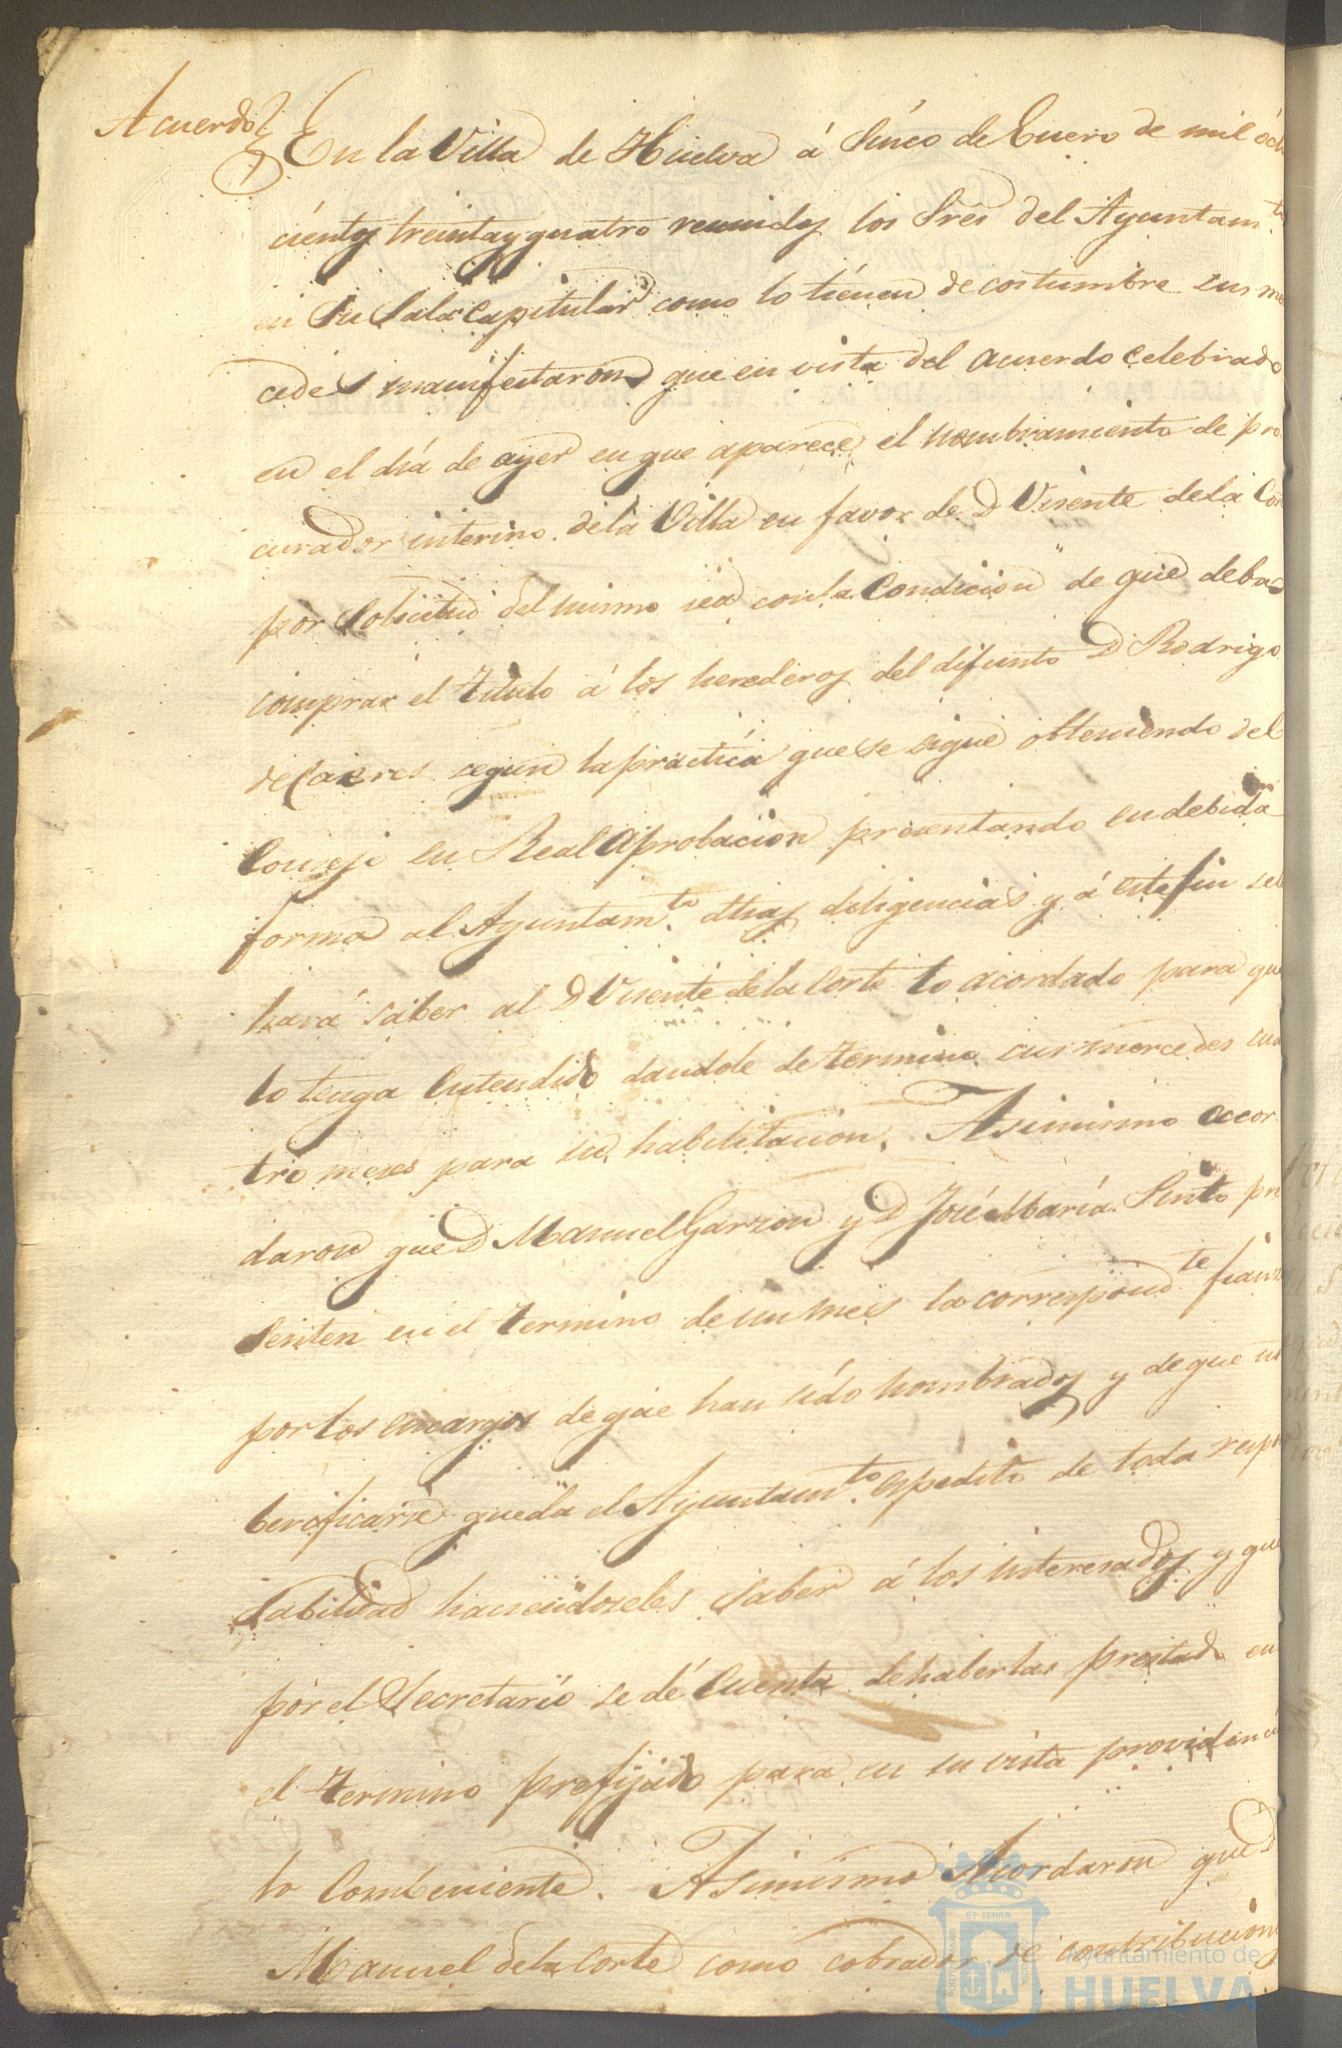 Acuerdo
En la Villa de Huelva á Sinco de Enero de mil óch
cientos treinta y quatro reunidos los Sres del Ayuntam.to
en Su Sala Capitular como lo tienen de costumbre sus mer
cedes manifestaron que en vista del acuerdo celebrado
en el día de ayer en que aparece el nombramiento de pro
curador interino de la Villa en favor de D Visente de la Cor
por Solicitud del mismo sea con la Condicion de que deba
comprar el Titulo á los herederos del difunto D Rodrigo
de Caseres segun la práctica que se sigue obteniendo del
Consejo su Real aprobacion presentando en debida
forma al Ayuntam.to dhas diligencias y á este fin se
hará saber al D Visente de la Corte lo acordado para que
lo tenga Entendido dandole de termino sus mercedes cua
tro meses para su habilitación. Asimismo acor
daron que D Manuel Garzon y D José María Pinto pre
senten en el termino de un mes la correspond.te fianz
por los encargos de que han sido nombrados y de que
beroficarse queda el Ayuntam.to espedito de toda respon
sabilidad haciendoseles saber á los interesados y que
por el Secretario se dé Cuenta de haberlas prestado en
el termino prefijado para en su vista providenciar
lo Combeniente. Asimismo Acordaron que D
Manuel de la Corte como cobrador de contribucion
ET TERRÆ
Ayuntamiento de
HUELVA